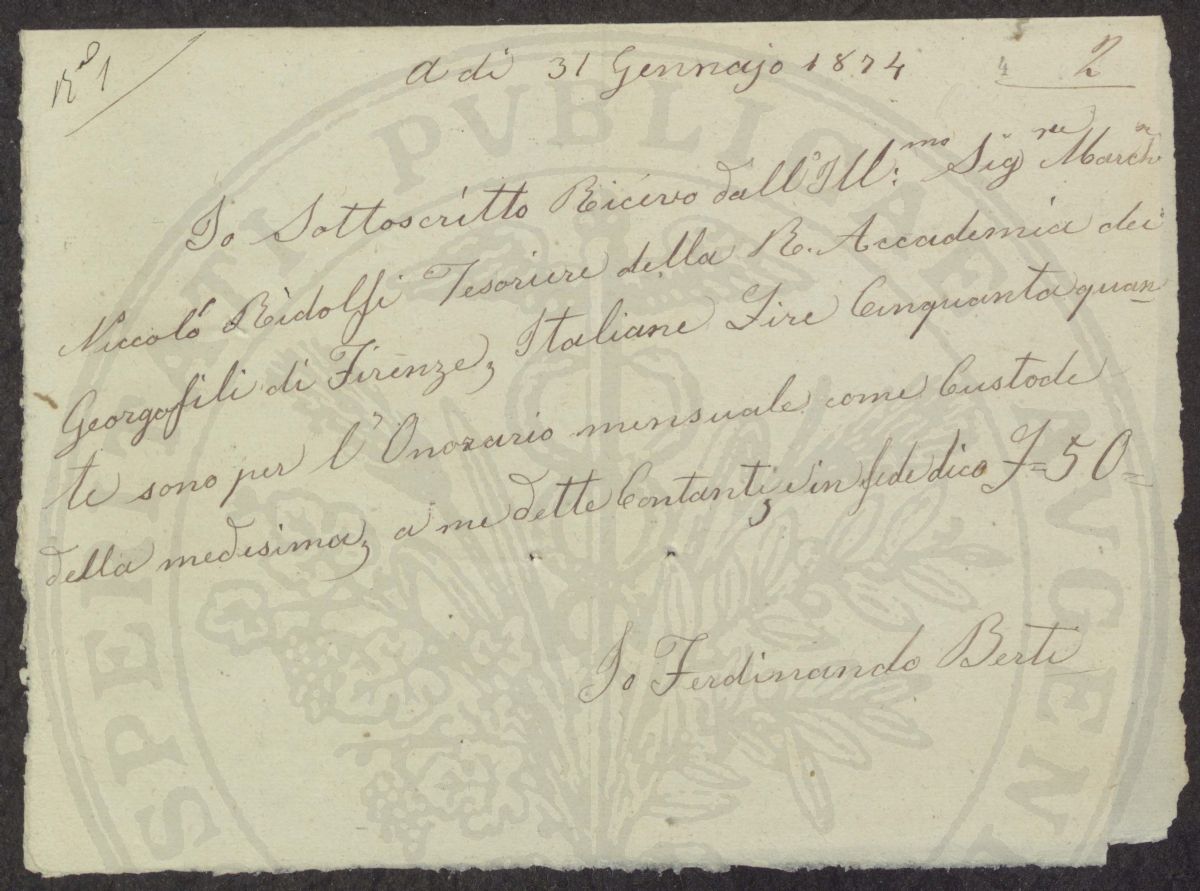 Rª 1
a di 31 Gennajo 1874
4
2
Io Sottoscritto Ricevo dall' Ill:mo Sigre March
Niccoló Ridolfi Tesoriere della R. Accademia dei
Georgofili di Firenze, Italiane Lire Cinquanta quan=
te sono per l'Onorario mensuale come Custode
della medesima, a me dette Contanti, e in fede dico £=50=
Io Ferdinando Berti
PROSPERITATI PVBLICAE AVGENDAE